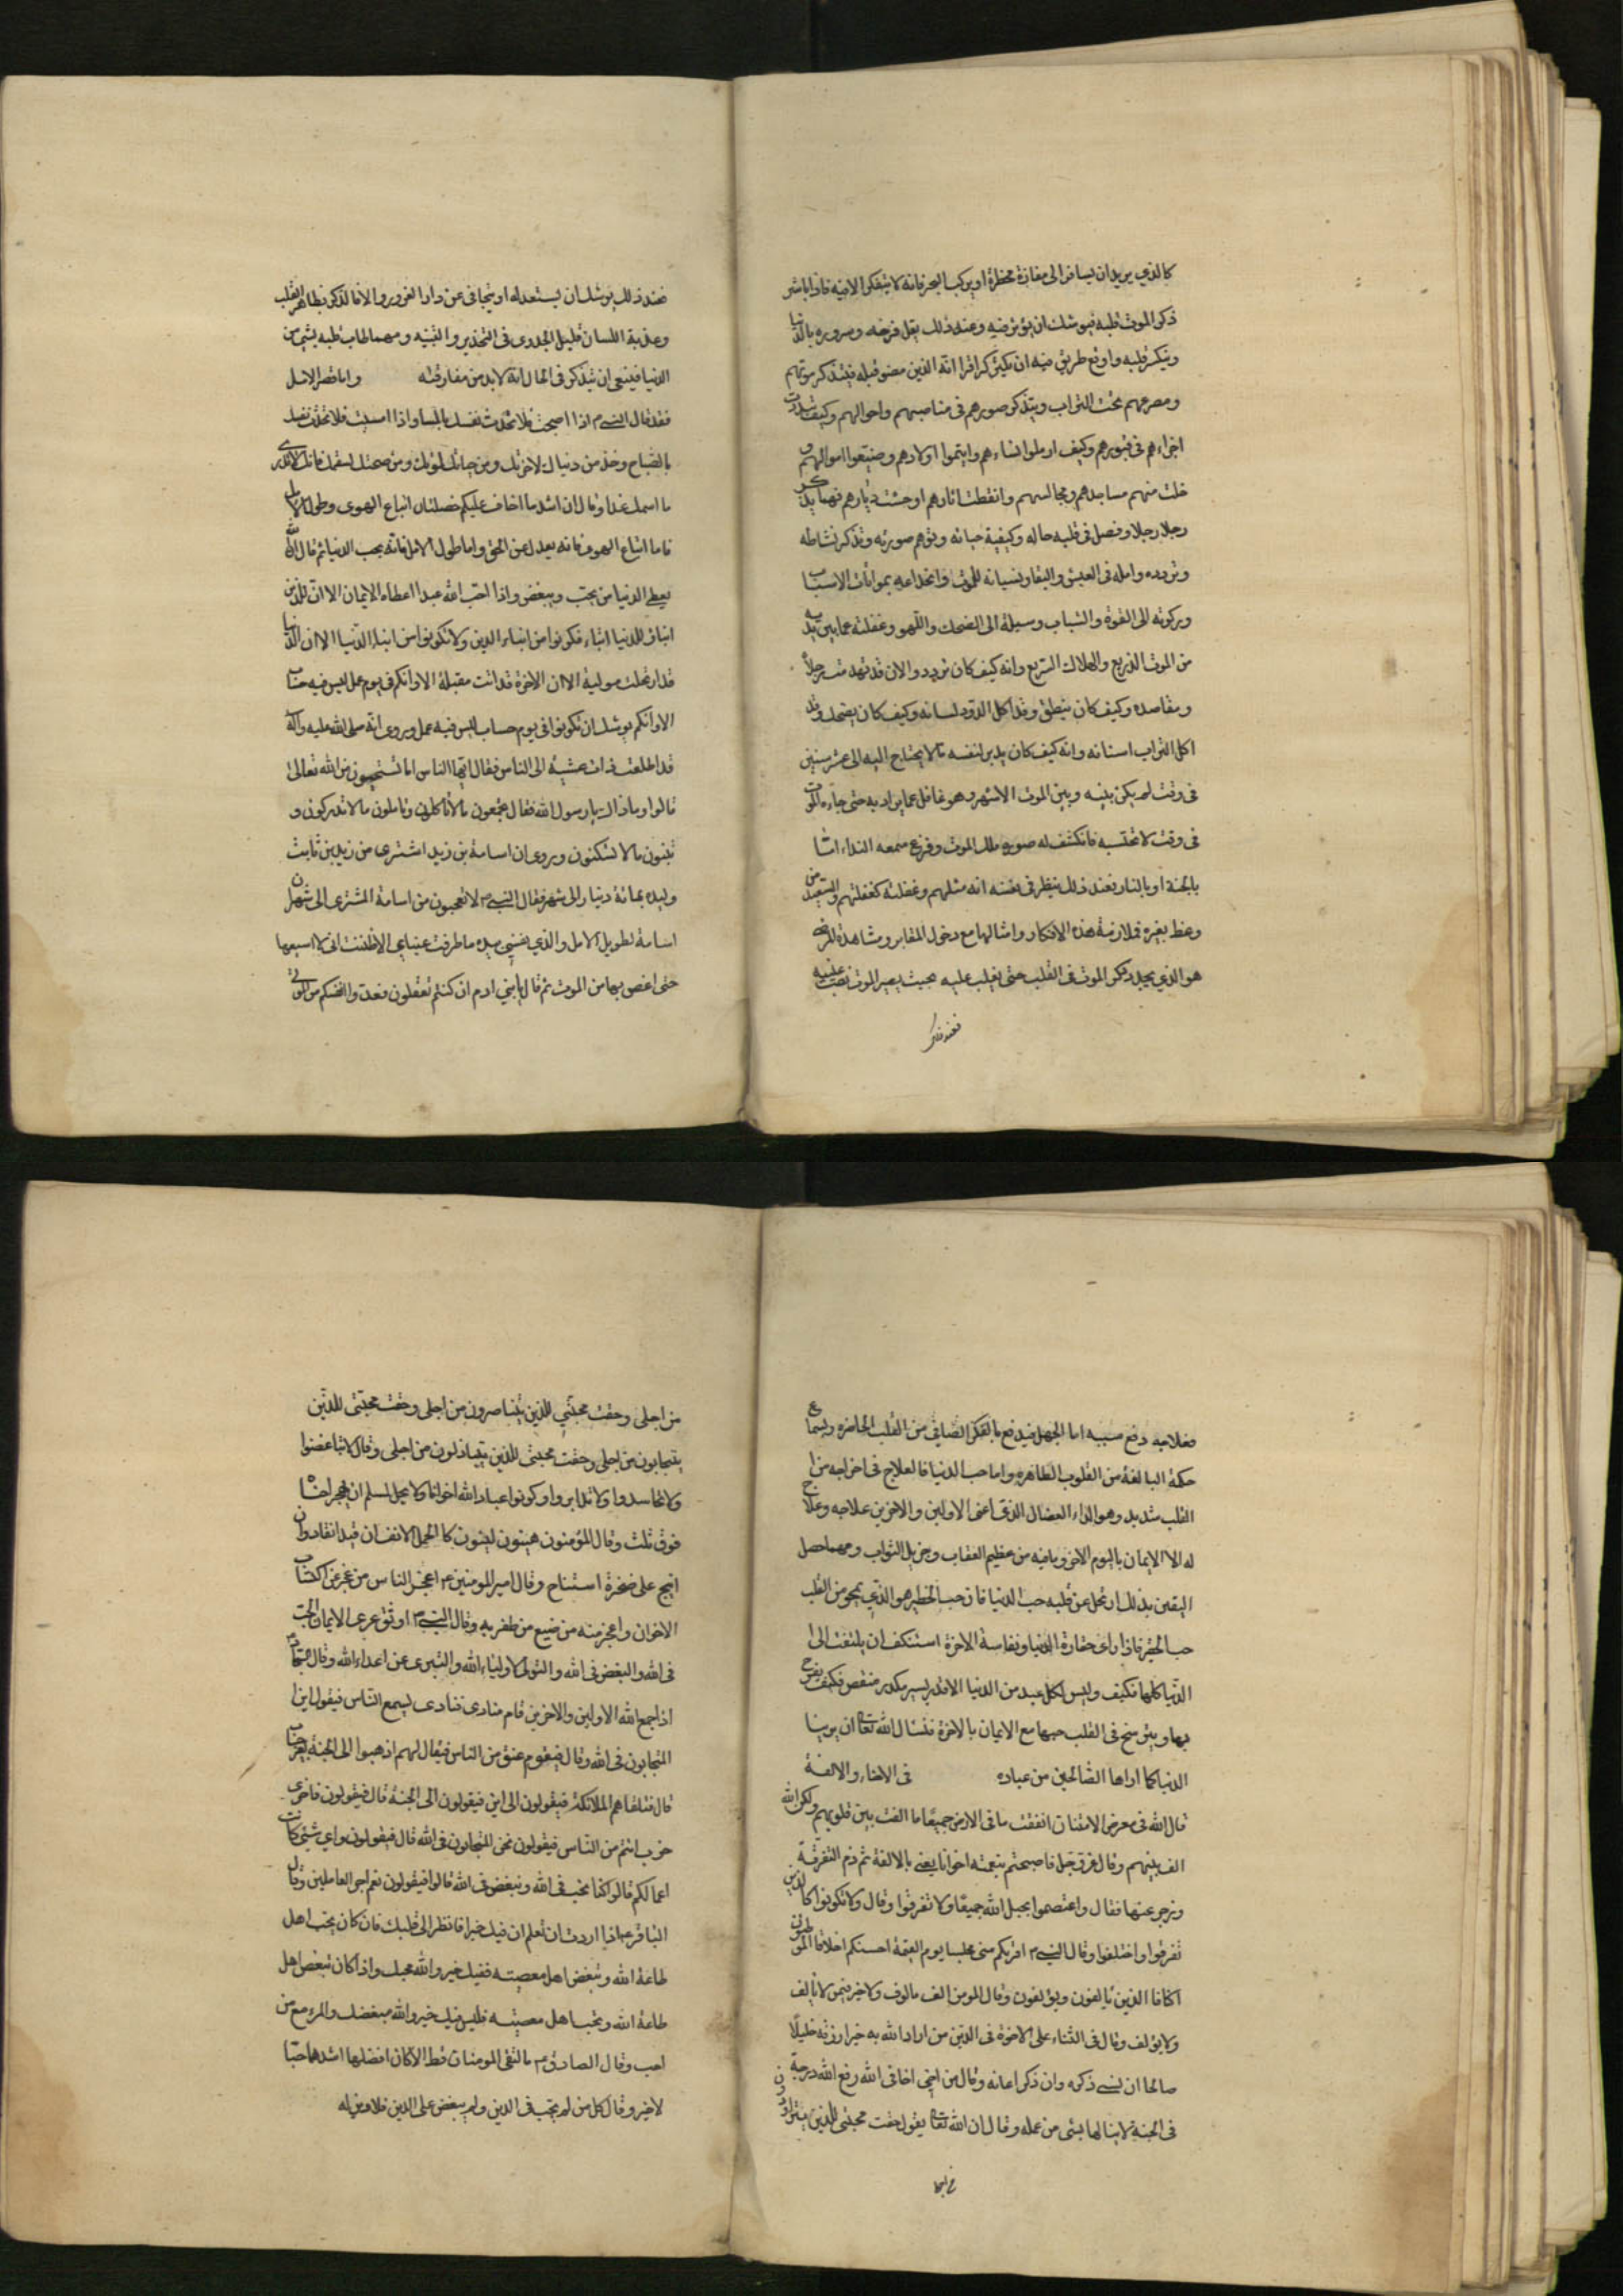 كالذي يريد ان يسافر الى مفازة مخطرة او يركب البحر فانه لا يتفكر الا فيه فاذا باشر
ذكر الموت قلبه فيوشك ان يؤثر فيه وعند ذلك يقل فرحه وسروره بالدنيا
وينكسر قلبه واوقع طريق فيه ان يكثر ذكر اقرانه الذين مضوا قبله فيتذكر موتهم
ومصرعهم تحت التراب ويتذكر صورهم في مناصبهم واحوالهم وكيف
اجزاءهم في قبورهم وكيف ارملوا نساءهم وايتموا اولادهم وضيعوا اموالهم و
خلت منهم مساجدهم ومجالسهم وانقطت اثارهم اوحشت ديارهم فمهما يذكر
رجلا رجلا وفصل في قلبه حاله وكيفية حياته وتوهم صورته وتذكر نشاطه
وتردده وامله في العيش والبقاء ونسيانه للموت وانخداعه بمواتات الاسباب
وركونه الى القوة والشباب وميله الى الضحك واللهو وغفلته عما بين يديه
من الموت الذريع والهلاك السريع وانه كيف كان يتردد والان قد تهدمت رجلاه
ومفاصله وكيف كان ينطق وقد اكل الدود لسانه وكيف كان يضحك وقد
اكل التراب اسنانه وانه كيف كان يدبر لنفسه ما لا يحتاج اليه الى عشر سنين
في وقت لم يكن بينه وبين الموت الا شهر وهو غافل عما يراد به حتى جاءه الموت
في وقت لا تحتسبه فانكشف له صورة ملك الموت وقرع سمعه النداء اما
بالجنة او بالنار فعند ذلك ينظر في نفسه انه مثلهم وغفلته كغفلتهم والسعيد من
وعظ بغيره فملازمة هذه الافكار وامثالها مع دخول المقابر ومشاهدة المرضى
هو الذي يجدد ذكر الموت في القلب حتى يغلب عليه بحيث يصير الموت نصب عينيه
فعند ذلك
فعند ذلك يوشك ان يستعد له او يتجافى عن دار الغرور والا فالذكر بظاهر القلب
وعذبة اللسان قليل الجدوى في التحذير والتنبيه ومهما طاب قلبه بشيء من
الدنيا فينبغي ان يتذكر في الحال انه لا بد من مفارقته واما قصر الامل
فقد قال النبي م اذا اصبحت فلا تحدث نفسك بالمساء واذا امسيت فلا تحدث نفسك
بالصباح وخذ من دنياك لاخرتك ومن حياتك لموتك ومن صحتك لسقمك فانك لا تدري
ما اسمك غدا وقال ان اشد ما اخاف عليكم خصلتان اتباع الهوى وطول الامل
فاما اتباع الهوى فانه يعدل عن الحق واما طول الامل فانه يحب الدنيا ثم قال ان الله
يعطي الدنيا من يحب ويبغض واذا احب الله عبدا اعطاه الايمان الا ان للدين
ابناء وللدنيا ابناء فكونوا من ابناء الدين ولا تكونوا من ابناء الدنيا الا ان الدنيا
قد ارتحلت مولية الا ان الاخرة قد اتت مقبلة الا وانكم في يوم عمل ليس فيه حساب
الا وانكم يوشك ان تكونوا في يوم حساب ليس فيه عمل وروى انه صلى الله عليه واله
قد اطلعت ذات عشية الى الناس فقال ايها الناس اما تستحيون من الله تعالى
قالوا وما ذاك يا رسول الله فقال تجمعون ما لا تاكلون وتاملون ما لا تدركون و
تبنون ما لا تسكنون وروى ان اسامة بن زيد اشترى من زيد بن ثابت
وليدة بمائة دينار الى شهر فقال النبي م لا تعجبون من اسامة المشترى الى شهر ان
اسامة لطويل الامل والذي نفسي بيده ما طرفت عيناي الا ظننت اني لا اسيغها
حتى اغص بها من الموت ثم قال يا بني ادم ان كنتم تعقلون فعدوا انفسكم من الموتى
فعلاجه دفع سببه اما الجهل فيدفع بالفكر الصافي من القلب الحاضر وبسماع
حكمة البالغة من القلوب الطاهرة واما حب الدنيا فالعلاج في اخراجه من ا
لقلب شديد وهو الداء العضال الذي اعيى الاولين والاخرين علاجه ولا علاج
له الا الايمان باليوم الاخر وبما فيه من عظيم العقاب وجزيل الثواب ومهما حصل
اليقين بذلك ارتحل عن قلبه حب الدنيا فان حب الخطير هو الذي يمحو من القلب
حب الحقير فاذا راى حقارة الدنيا ونفاسة الاخرة استنكف ان يلتفت الى ا
لدنيا كلها فكيف وليس لكل عبد من الدنيا الا قدر يسير مكدر منغص فكيف يفرح
بها ويترسخ في القلب حبها مع الايمان بالاخرة فنسال الله تعالى ان يرينا
الدنيا كما اراها الصالحين من عباده في الاخاء والالفة
قال الله في معرض الامتنان انفقت ما في الارض جميعا ما الفت بين قلوبهم ولكن الله
الف بينهم وقال عز وجل فاصبحتم بنعمته اخوانا يعني بالالفة ثم ذم التفرقة
وزجر عنها فقال واعتصموا بحبل الله جميعا ولا تفرقوا وقال ولا تكونوا كالذين
تفرقوا واختلفوا وقال النبي م اقربكم مني مجلسا يوم القيمة احسنكم اخلاقا الموطئون
اكنافا الذين يالفون ويؤلفون وقال المومن الف مالوف ولا خير فيمن لا يالف
ولا يؤلف وقال في الثناء على الاخوة في الدين من اراد الله به خيرا رزقه خليلا
صالحا ان نسي ذكره وان ذكر اعانه وقال من اخى اخا في الله رفع الله درجة
في الجنة لا ينالها بشيء من عمله وقال ان الله تعالى يقول حقت محبتي للذين يتزاورون
من اجلى
من اجلى وحقت محبتي للذين يتناصرون من اجلى وحقت محبتي للذين
يتحابون من اجلى وحقت محبتي للذين يتباذلون من اجلى وقال لا تباغضوا
ولا تحاسدوا ولا تدابروا وكونوا عباد الله اخوانا ولا يحل لمسلم ان يهجر اخاه
فوق ثلث وقال المؤمنون هينون لينون كالجمل الانف ان قيد انقاد وان
انيخ على صخرة استناخ وقال امير المومنين ع اعجز الناس من عجز عن اكتساب
الاخوان واعجز منه من ضيع من ظفر به وقال النبي م اوثق عرى الايمان الحب
في الله والبغض في الله والتولى لاولياء الله والتبرى عن اعداء الله وقال
اذا جمع الله الاولين والاخرين قام منادى فنادى يسمع الناس فيقول اين ا
لمتحابون في الله وقال فيقوم عنق من الناس فيقال لهم اذهبوا الى الجنة بغير حساب
قال فتلقاهم الملائكة فيقولون الى اين فيقولون الى الجنة قال فيقولون فاى
حزب انتم من الناس فيقولون نحن المتحابون في الله قال فيقولون واي شيء كانت
اعمالكم قالوا كنا نحب في الله ونبغض في الله قالوا فيقولون نعم اجر العاملين وقال
الباقر ع اذا اردت ان تعلم ان فيك خيرا فانظر الى قلبك فان كان يحب اهل
طاعة الله ويبغض اهل معصيته ففيك خير والله يحبك واذا كان يبغض اهل
طاعة الله ويحب اهل معصيته فليس فيك خير والله مبغضك والمرء مع من
احب وقال الصادق ع ما التقى المومنات قط الا كان افضلها اشدهما حبا
لاخيه وقال كل من لم يحب في الدين ولم يبغض على الدين فلا دين له